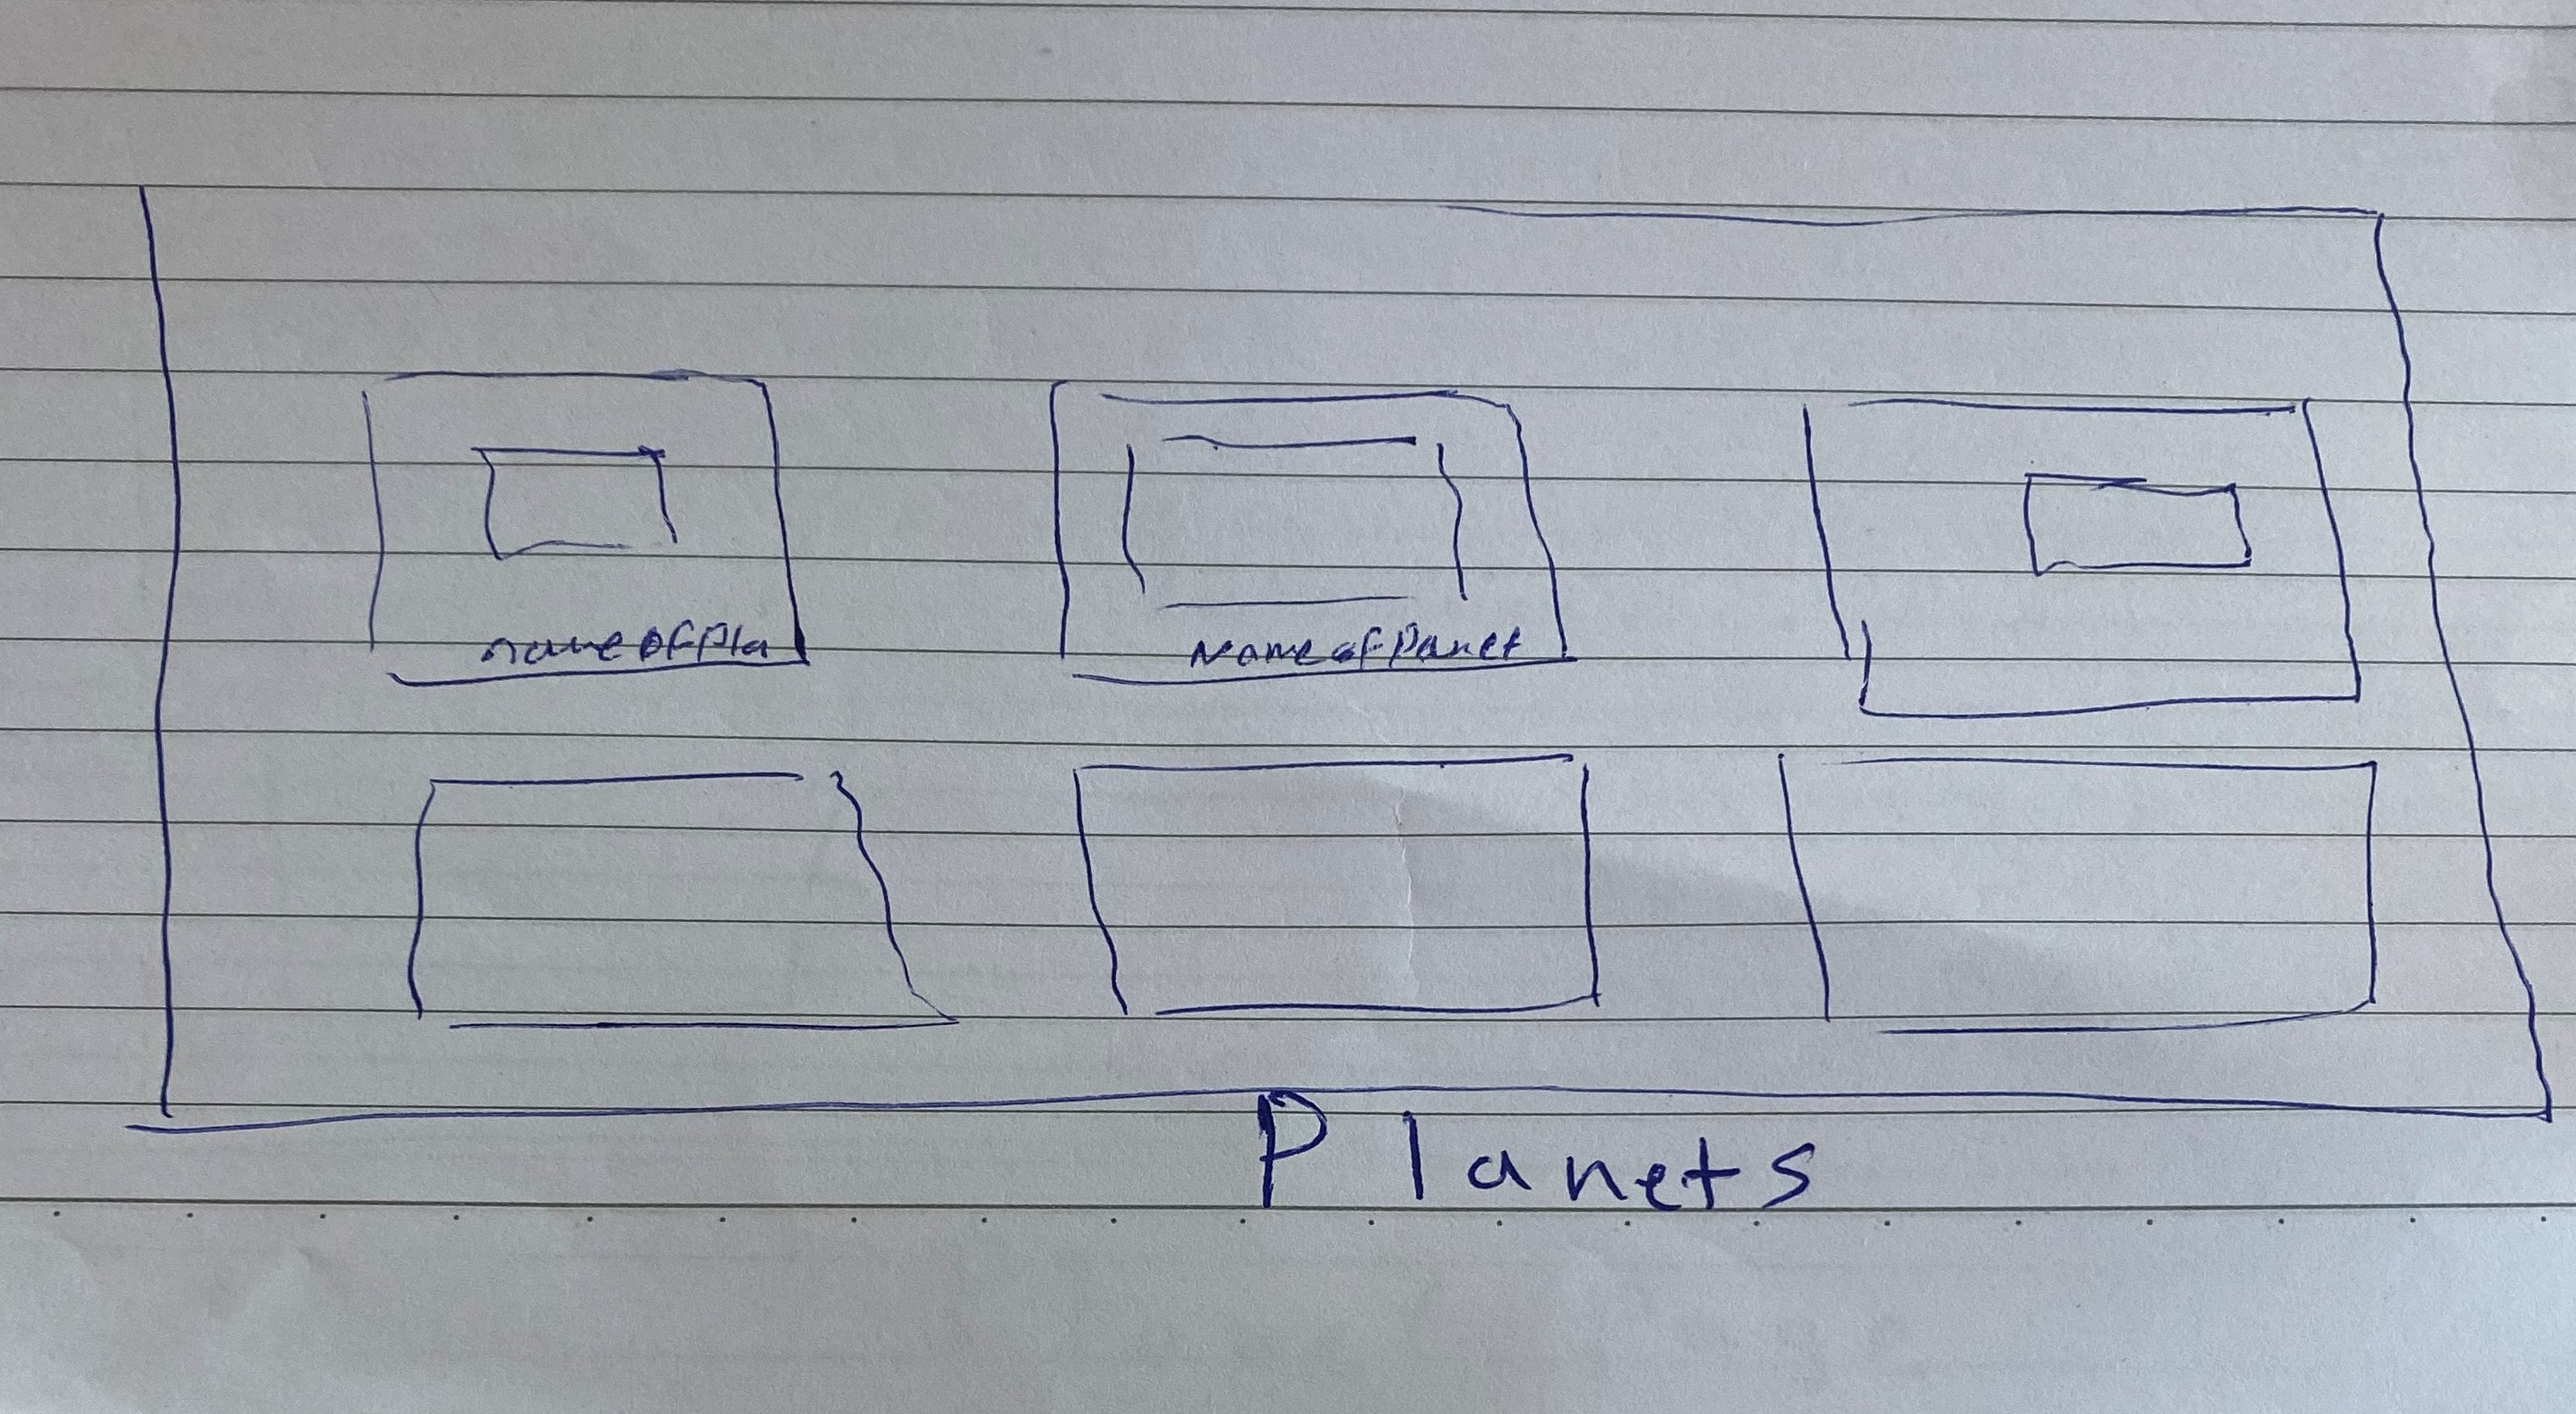 name of Pla
Name of Panet
Planets